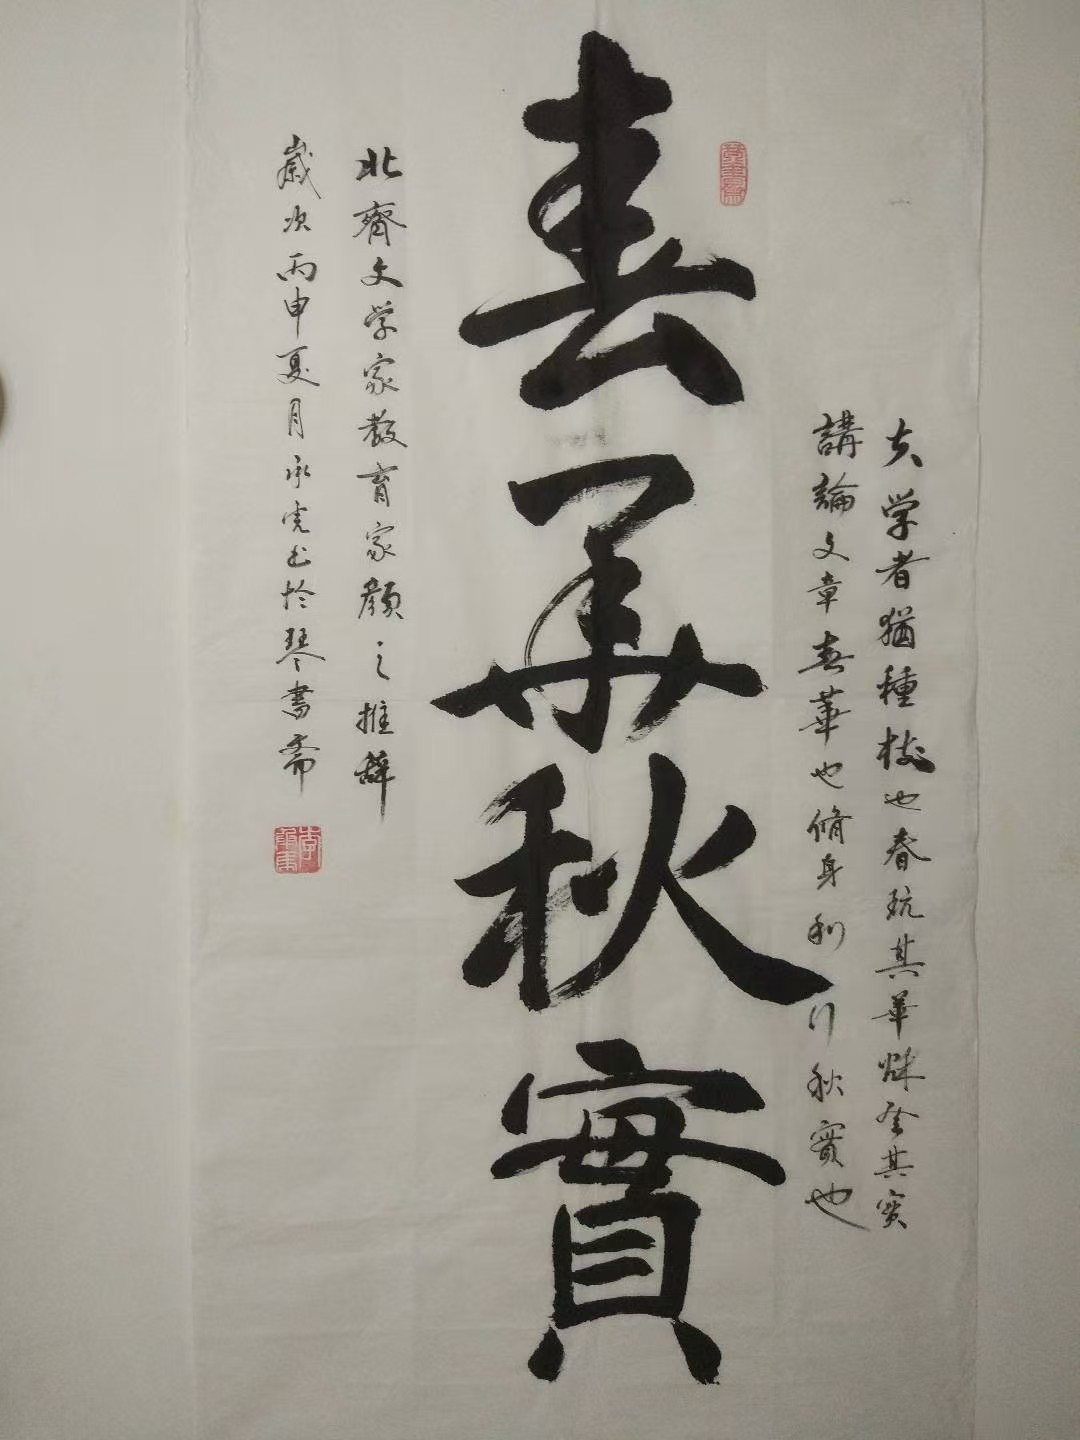 夫学者猶種樹也春玩其華秋登其實
講論文章春華也脩身利行秋實也
春華秋實
北齊文学家教育家顔之推辞
歲次丙申夏月承虎书於琴書斋